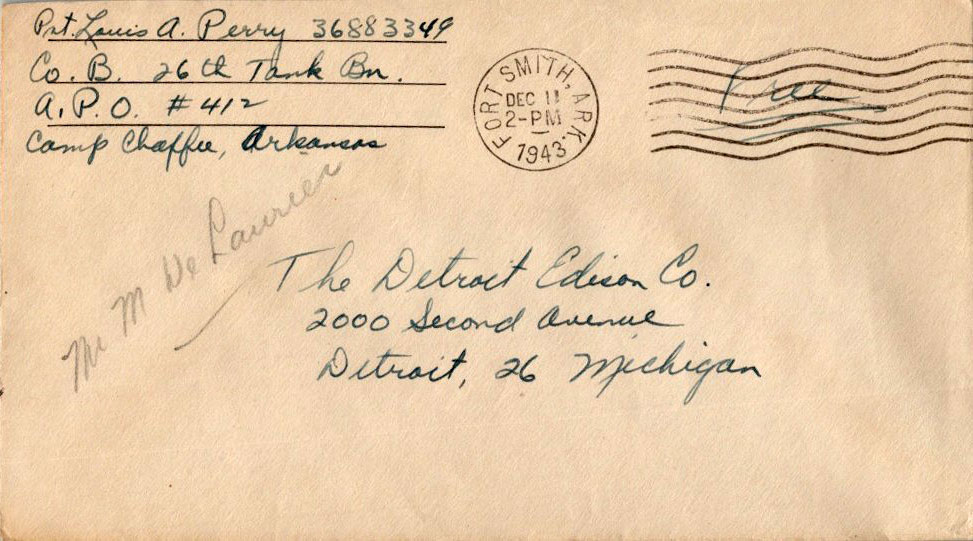 Pvt. Louis A. Perry 36883349
Co. B. 26th Tank Bn.
A.P.O. #412
Camp Chaffee, Arkansas
FORT SMITH, ARK.
DEC 11
2-PM
1943
Free
Mr M De Laurier
The Detroit Edison Co.
2000 Second Avenue
Detroit, 26 Michigan